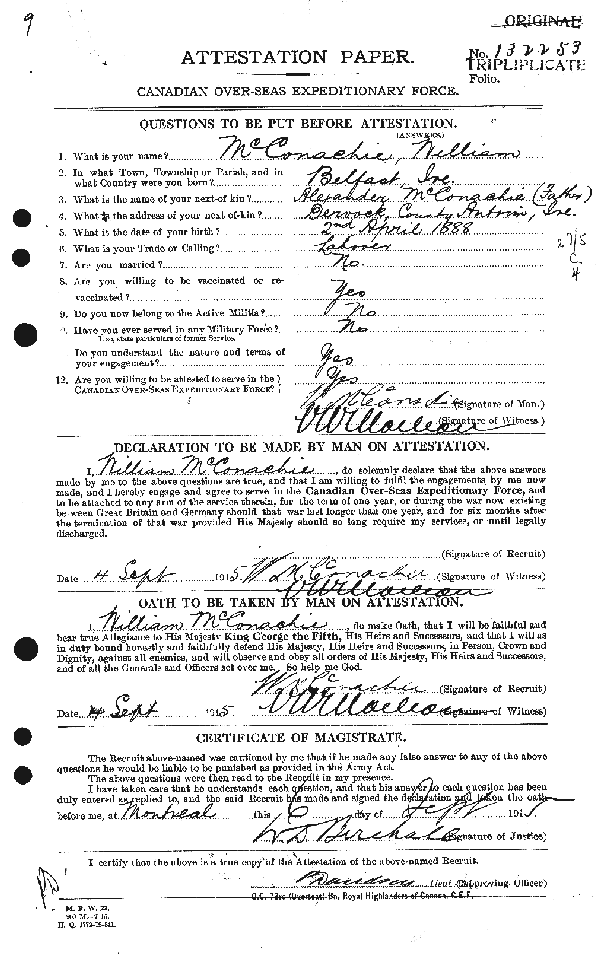 9
ORIGINAL
ATTESTATION PAPER.
No. 132253
TRIPLIPLICATE
Folio.
CANADIAN OVER-SEAS EXPEDITIONARY FORCE.
QUESTIONS TO BE PUT BEFORE ATTESTATION.
(ANSWERS)
1. What is your name? McConachie, William
2. In what Town, Township or Parish, and in
what Country were you born? Belfast, Ire.
3. What is the name of your next-of-kin? Alexander McConachie (Father)
4. What is the address of your next-of-kin? Dervock, County Antrim, Ire.
5. What is the date of your birth? 2nd April 1888
6. What is your Trade or Calling? Laborer
7. Are you married? No.
8. Are you willing to be vaccinated or re-
vaccinated? Yes
9. Do you now belong to the Active Militia? No
Have you ever served in any Military Force? No
If so, state particulars of former Service.
Do you understand the nature and terms of
your engagement? Yes
12. Are you willing to be attested to serve in the Yes
CANADIAN OVER-SEAS EXPEDITIONARY FORCE?
W McConachie (Signature of Man.)
(Signature of Witness)
DECLARATION TO BE MADE BY MAN ON ATTESTATION.
I, William McConachie, do solemnly declare that the above answers
made by me to the above questions are true, and that I am willing to fulfil the engagements by me now
made, and I hereby engage and agree to serve in the Canadian Over-Seas Expeditionary Force, and
to be attached to any arm of the service therein, for the term of one year, or during the war now existing
between Great Britain and Germany should that war last longer than one year, and for six months after
the termination of that war provided His Majesty should so long require my services, or until legally
discharged.
(Signature of Recruit)
Date 4 Sept 1915 W McConachie (Signature of Witness)
OATH TO BE TAKEN BY MAN ON ATTESTATION.
I, William McConachie, do make Oath, that I will be faithful and
bear true Allegiance to His Majesty King George the Fifth, His Heirs and Successors, and that I will as
in duty bound honestly and faithfully defend His Majesty, His Heirs and Successors, in Person, Crown and
Dignity, against all enemies, and will observe and obey all orders of His Majesty, His Heirs and Successors,
and of all the Generals and Officers set over me. So help me God.
W McConachie (Signature of Recruit)
Date 4 Sept 1915 (Signature of Witness)
CERTIFICATE OF MAGISTRATE.
The Recruit above-named was cautioned by me that if he made any false answer to any of the above
questions he would be liable to be punished as provided in the Army Act.
The above questions were then read to the Recruit in my presence.
I have taken care that he understands each question, and that his answer to each question has been
duly entered as replied to, and the said Recruit has made and signed the declaration and taken the oath
before me, at Montreal this 6 day of Sept 1915
(Signature of Justice)
I certify that the above is a true copy of the Attestation of the above-named Recruit.
Lieut Col. (Approving Officer)
O.C. 73rd (Overseas) Bn. Royal Highlanders of Canada, C.E.F.
M. F. W. 23.
H. Q. 1772-39-841.